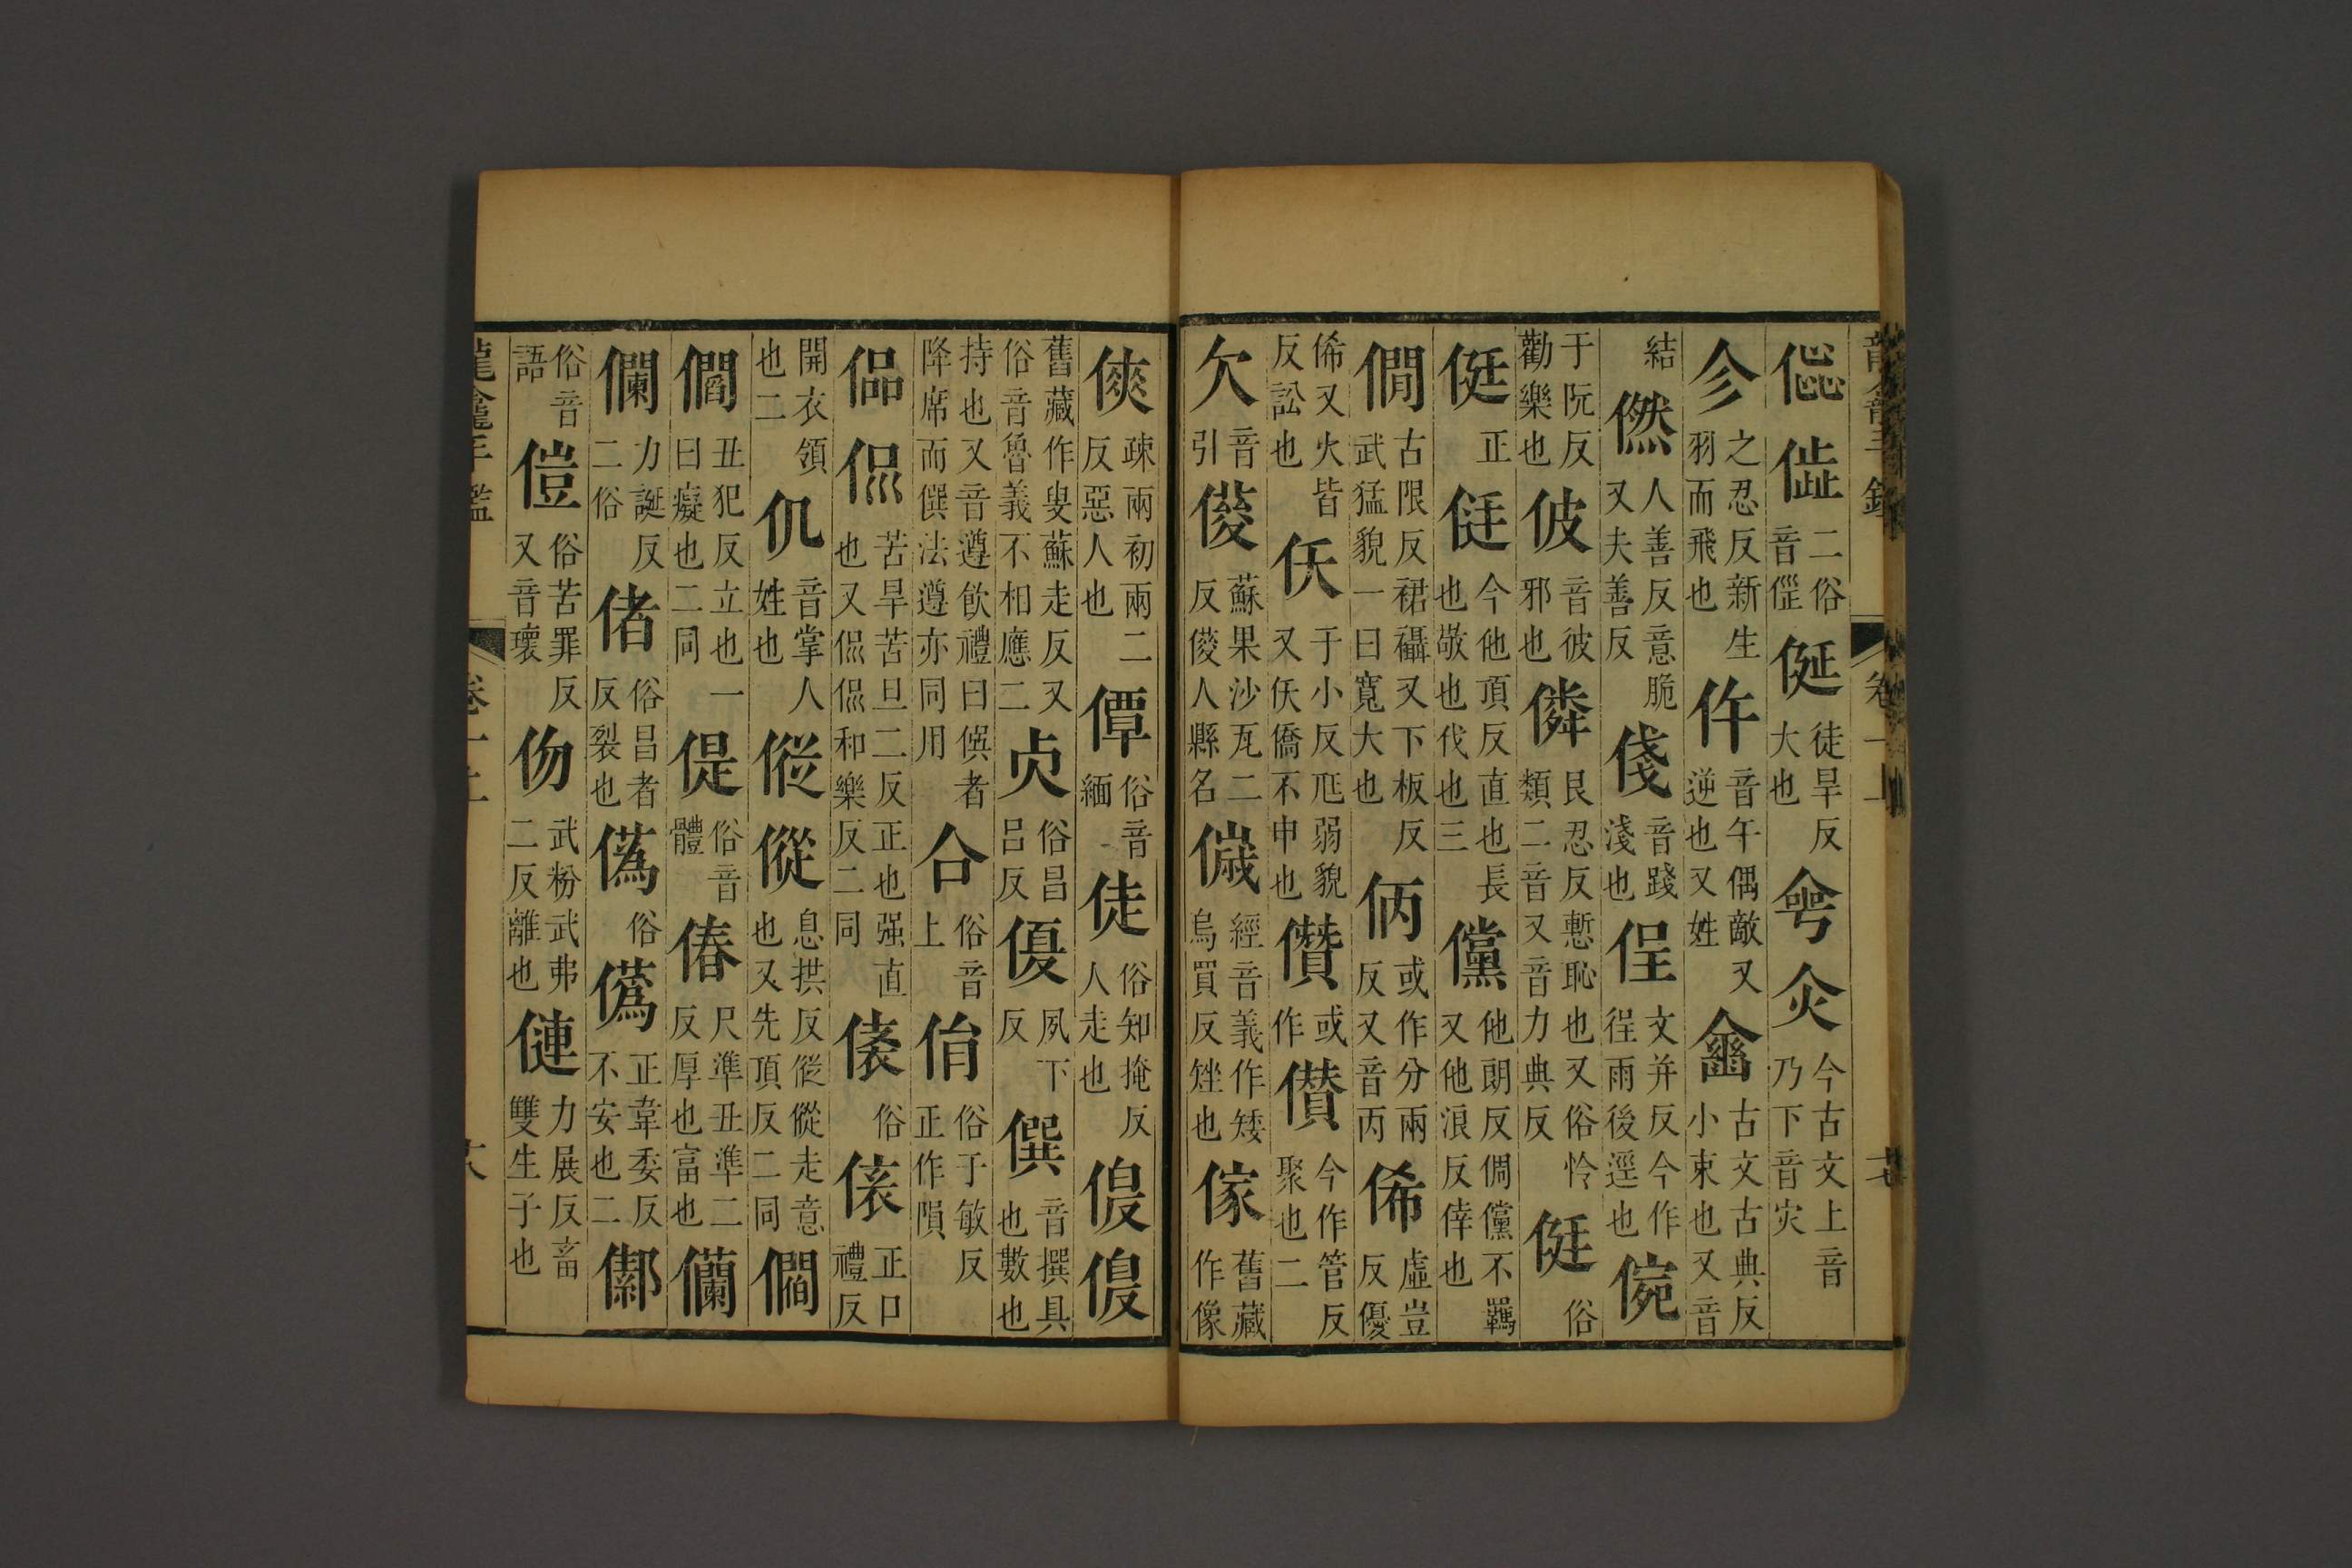 龍龕手鑑 卷一上 十七
二俗音徎侹徒旱反大也今古文上音乃下音灾
㐱之忍反新生羽而飛也仵音午偶敵又逆也又姓古文古典反小束也又音
結㒄人善反意脆又夫善反俴音踐淺也侱文并反今作徎雨後逕也㑮
于阮反勸樂也佊音彼邪也僯艮忍反慙恥也又俗怜類二音又音力典反侹俗
侹正侹今他頂反直也長也敬也伐也三儻他朗反倜儻不羈又他浪反倖也
僩古限反裙襵又下板反武猛貌一曰寬大也㑂或作分兩反又音丙俙虛豈反優
俙又火皆反訟也仸于小反尫弱貌又仸僑不申也儹或作儧今作管反聚也二
欠音引傻蘇果沙瓦二反傻人縣名經音義作矮烏買反矬也傢舊藏作像
傸疎兩初兩二反惡人也俗音緬徒俗知掩反人走也
舊藏作叟蘇走反又俗音魯義不相應二俗昌呂反優夙下反僎音撰具也數也
持也又音遵飲禮曰僎者降席而僎法遵亦同用合俗音上俗于敏反正作隕
偘侃苦旱苦旦二反正也强直也又侃侃和樂反二同俗正口禮反
開衣領也二仉音掌人姓也㒀傱息拱反傱傱走意也又先頂反二同僴
丑犯反立也一曰癡也二同偍俗音體偆尺準丑準二反厚也富也
力誕反二俗偖俗昌者反裂也僞俗僞正韋委反不安也二
俗音語俗苦罪反又音壞伆武粉武弗二反離也僆力展反畜雙生子也
龍龕手鑑 卷一上